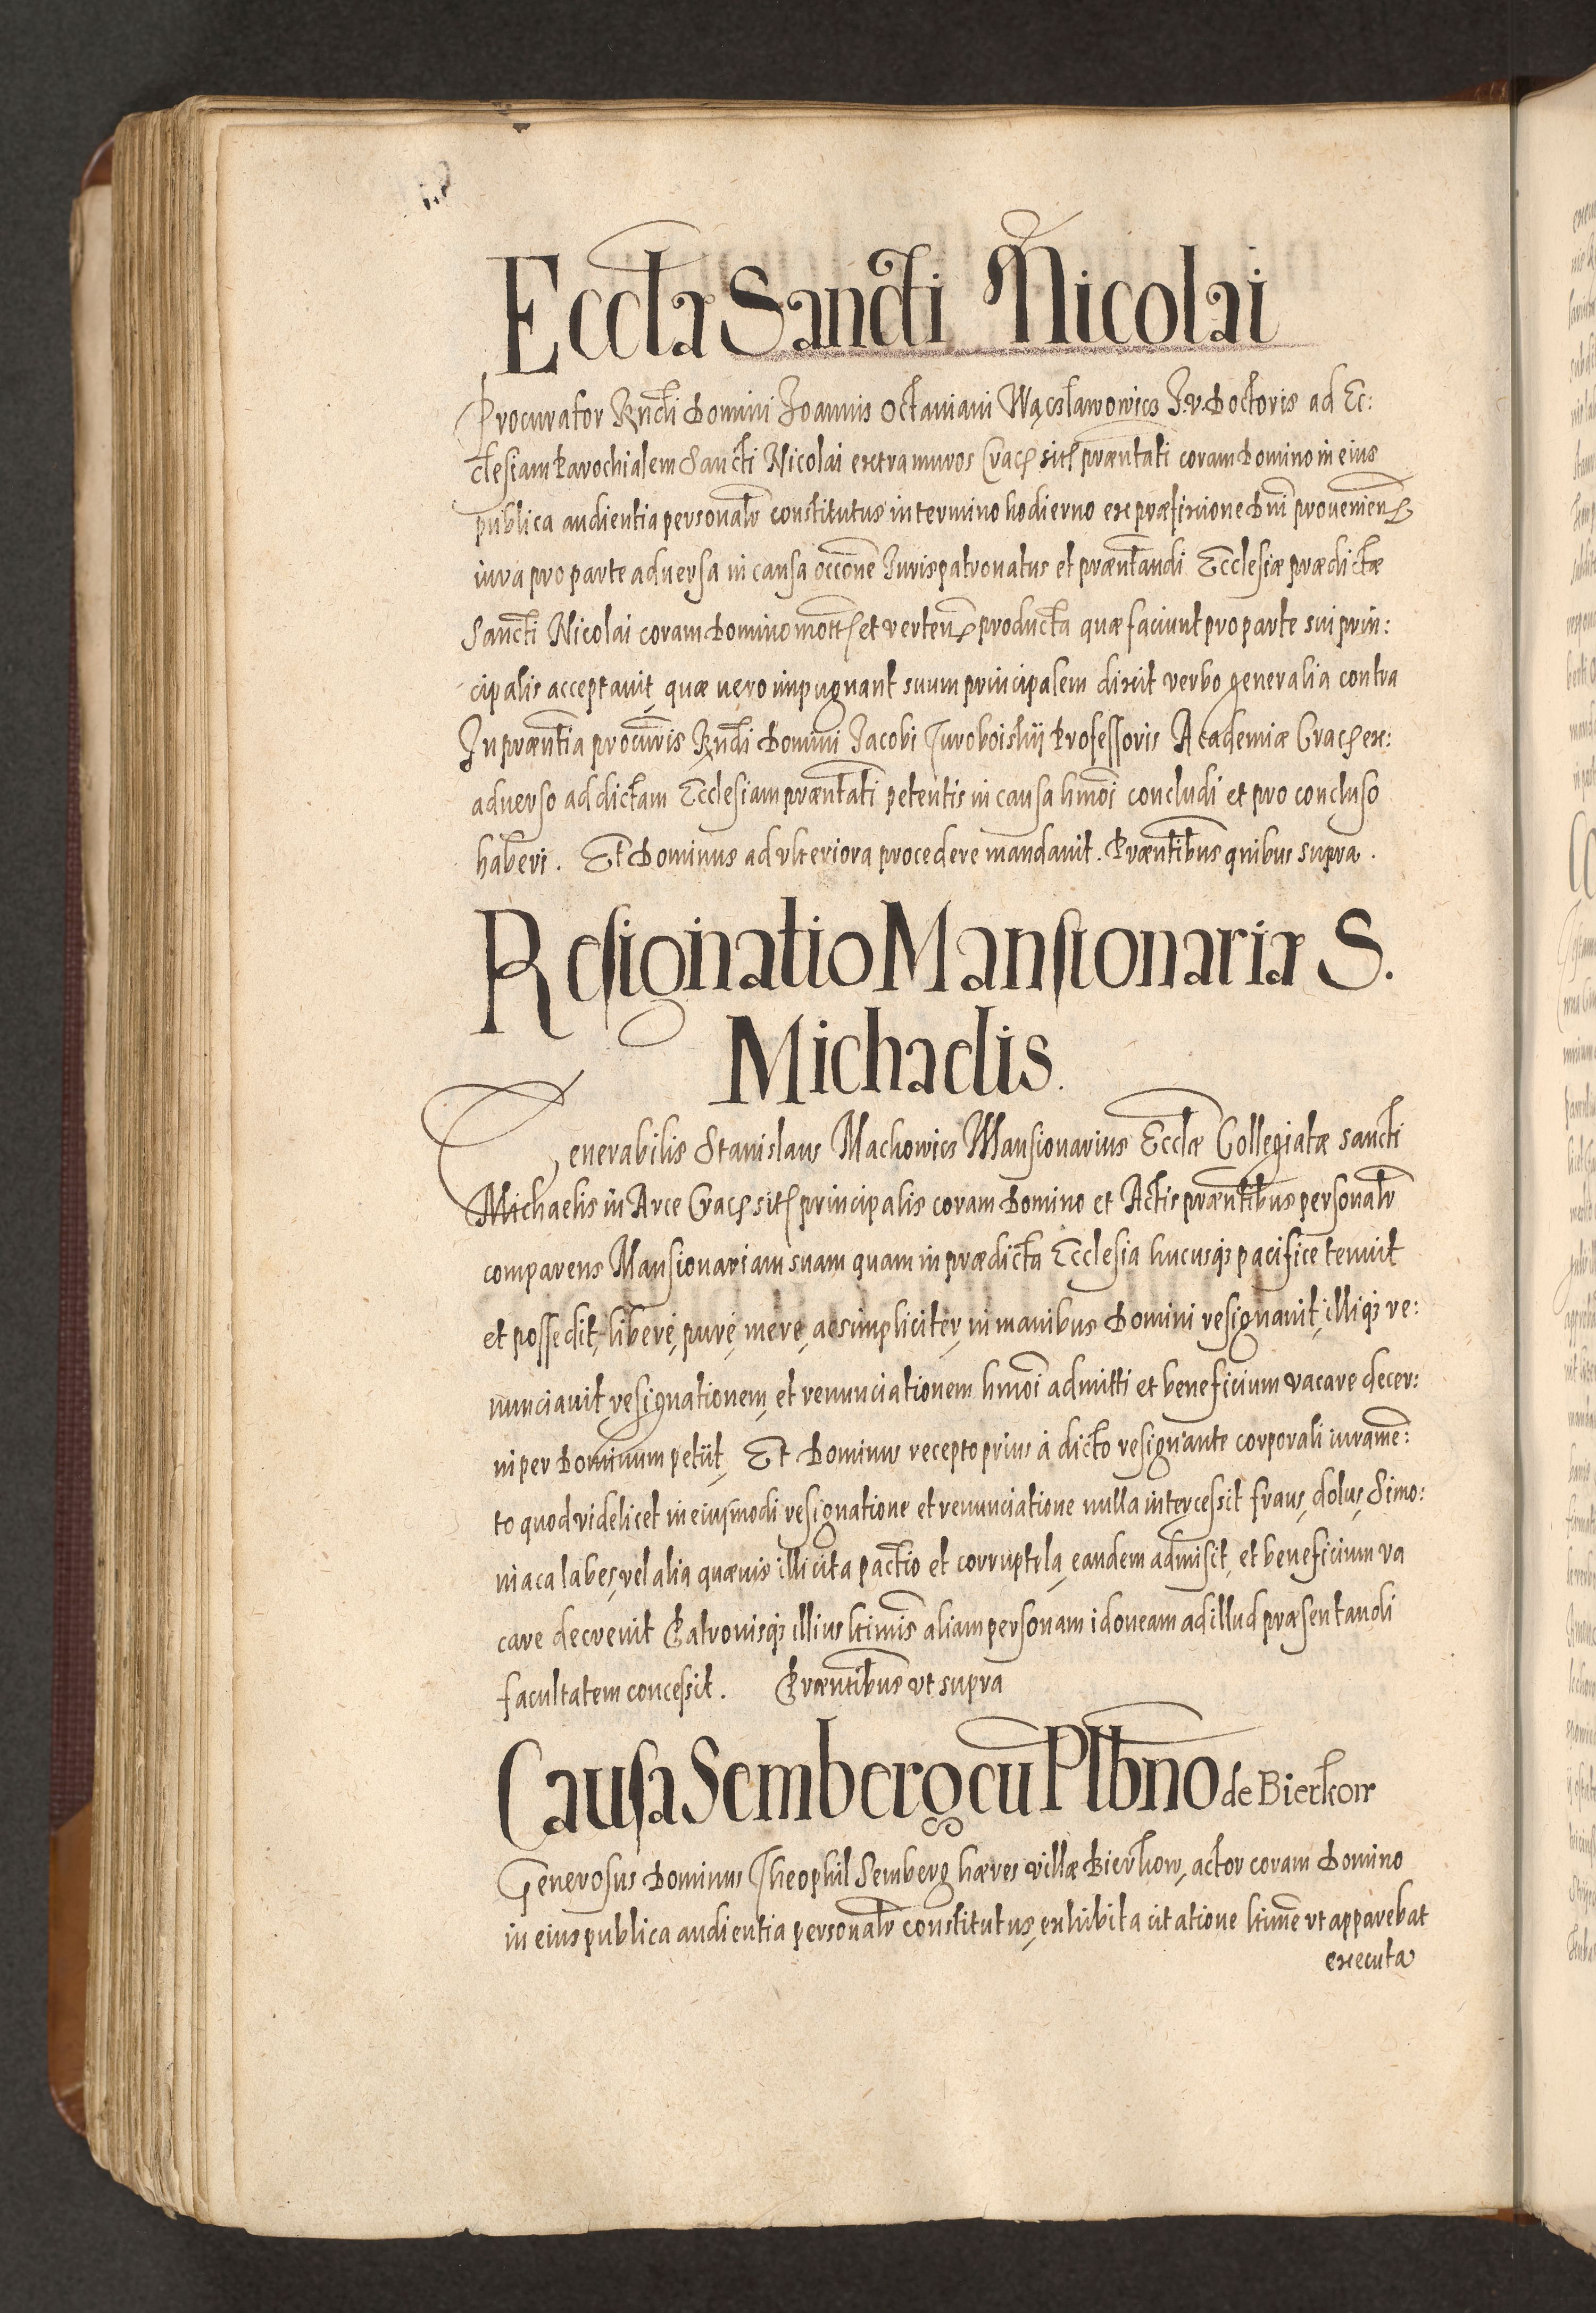 Eccla Sancti Nicolai
Procurator Rndi Domini Joannis Octaviani Wącslawowics J.v. Doctoris ad Ec:
clesiam Parochialem Sancti Nicolai extra muros Crac sit præntati coram Domino in eius
publica audientia personalr constitutus in termino hodierno ex præfixione Dni provenien
iura pro parte adversa in causa occone Jurispatronatus et præntandi Ecclesiæ prædictæ
Sancti Nicolai coram Domino mott et verten producta quæ faciunt pro parte sui prin:
cipalis acceptauit, quæ uero inpugnant suum principalem dixit verbo generalia contra
In præntia procuris Rndi Domini Jacobi Turoboishÿ Professoris Academiæ Crac ex:
aduerso ad dictam Ecclesiam præntati petentis in causa hmoi concludi et pro concluso
haberi. Et Dominus ad vlteriora procedere mandauit. Præntibus quibus supra.
Resignatio Mansionariæ S.
Michaelis.
Venerabilis Stanislaus Machowics Mansionarius Ecclæ Collegiatæ sancti
Michaelis in Arce Crac sit principalis coram Domino et Actis præntibus personalr
comparens Mansionariam suam quam in prædicta Ecclesia hucusq; pacifice tenuit
et possedit, liberè, purè, merè, ac simpliciter, in manibus Domini resignauit, illiq; re:
nunciauit resignationem, et renunciationem hmoi admitti et beneficium vacare decer:
ni per Dominum petiit, Et Dominus recepto prius à dicto resignante corporali iurame:
to quod videlicet in eiusmodi resignatione et renunciatione nulla intercessit fraus, dolus, Simo:
niaca labes, vel alia quævis illicita pactio et corruptela, eandem admisit, et beneficium va
care decrevit Patronisq; illius ltimis aliam personam idoneam ad illud præsentandi
facultatem concessit. Præntibus vt supra
Causa Semberg cu Plbno de Bierkow
Generosus Dominus Theophil Semberg hæres villæ Bierkow, actor coram Domino
in eius publica audientia personalr constitutus, exhibita citatione ltime vt apparebat
executa